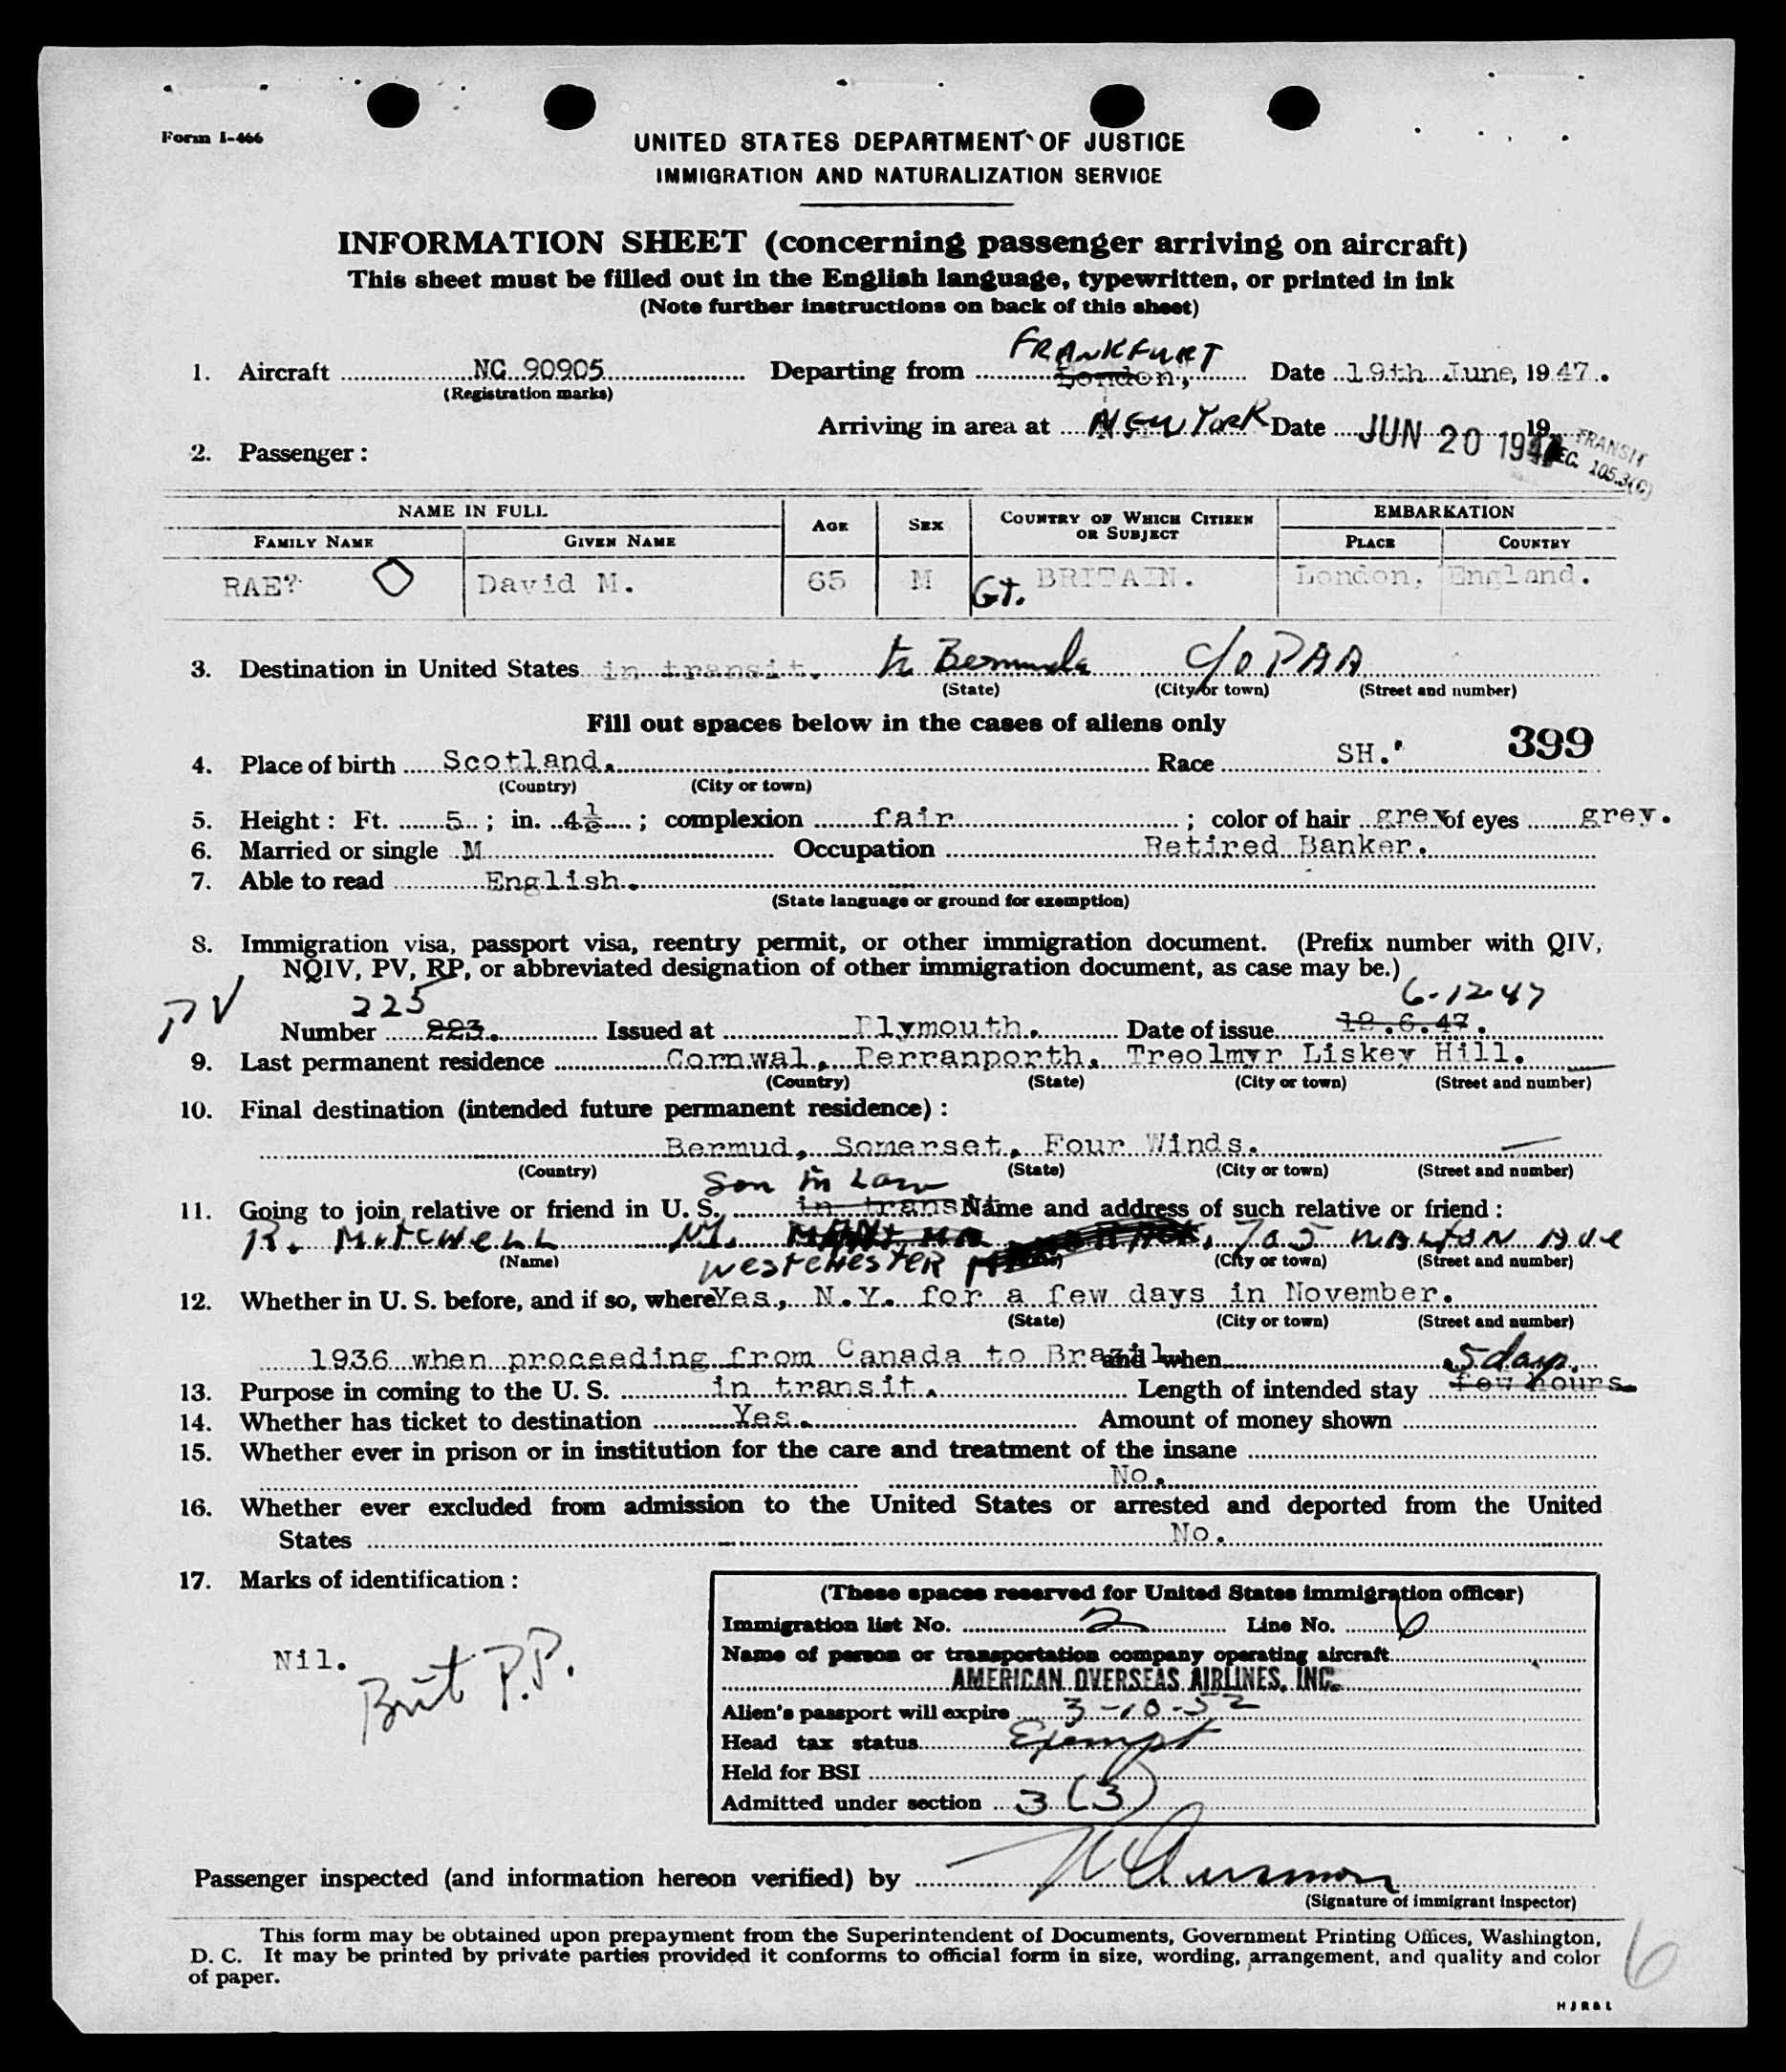 Form I-466
UNITED STATES DEPARTMENT OF JUSTICE
IMMIGRATION AND NATURALIZATION SERVICE
INFORMATION SHEET (concerning passenger arriving on aircraft)
This sheet must be filled out in the English language, typewritten, or printed in ink
(Note further instructions on back of this sheet)
FRANKFURT
1. Aircraft NC 90905 Departing from London, Date 19th June, 1947.
(Registration marks)
Arriving in area at NEW YORK Date JUN 20 194 19
TRANSIT
2. Passenger:
SEC. 105.3(C)
NAME IN FULL AGE SEX COUNTRY OF WHICH CITIZEN OR SUBJECT EMBARKATION
FAMILY NAME GIVEN NAME PLACE COUNTRY
RAE? David M. 65 M Gt. BRITAIN. London, England.
3. Destination in United States in transit. to Bermuda c/o PAA
(State) (City or town) (Street and number)
Fill out spaces below in the cases of aliens only
399
4. Place of birth Scotland. Race SH.
(Country) (City or town)
5. Height: Ft. 5 ; in. 4½ ; complexion fair ; color of hair grey of eyes grey.
6. Married or single M Occupation Retired Banker.
7. Able to read English.
(State language or ground for exemption)
8. Immigration visa, passport visa, reentry permit, or other immigration document. (Prefix number with QIV,
NQIV, PV, RP, or abbreviated designation of other immigration document, as case may be.)
PV 225 6-12-47
Number 223. Issued at Plymouth. Date of issue 12.6.47.
9. Last permanent residence Cornwal, Perranporth, Treolmyr Liskey Hill.
(Country) (State) (City or town) (Street and number)
10. Final destination (intended future permanent residence):
Bermud, Somerset, Four Winds.
(Country) (State) (City or town) (Street and number)
Son in Law
11. Going to join relative or friend in U. S. in transit Name and address of such relative or friend:
R. MITCHELL NY. 705 WALTON AVE
(Name) (City or town) (Street and number)
WESTCHESTER
12. Whether in U. S. before, and if so, where Yes, N.Y. for a few days in November.
(State) (City or town) (Street and number)
1936 when proceeding from Canada to Brazil. and when
5 days.
13. Purpose in coming to the U. S. in transit. Length of intended stay few hours
14. Whether has ticket to destination Yes. Amount of money shown
15. Whether ever in prison or in institution for the care and treatment of the insane
No.
16. Whether ever excluded from admission to the United States or arrested and deported from the United
States No.
17. Marks of identification:
Nil.
Brit P.P.
(These spaces reserved for United States immigration officer)
Immigration list No. 2 Line No. 6
Name of person or transportation company operating aircraft
AMERICAN OVERSEAS AIRLINES, INC.
Alien's passport will expire 3-10-52
Head tax status Exempt
Held for BSI
Admitted under section 3 (3)
Passenger inspected (and information hereon verified) by
(Signature of immigrant inspector)
This form may be obtained upon prepayment from the Superintendent of Documents, Government Printing Offices, Washington,
D. C. It may be printed by private parties provided it conforms to official form in size, wording, arrangement, and quality and color
of paper.
6
HJR&L